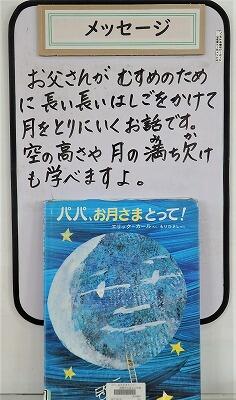 メッセージ
お父さんが むすめのため
に 長い長いはしごをかけて
月をとりにいくお話です。
空の高さや 月の満ち欠け
も学べますよ。
パパ、お月さまとって!
エリック=カール さく もりひさし やく